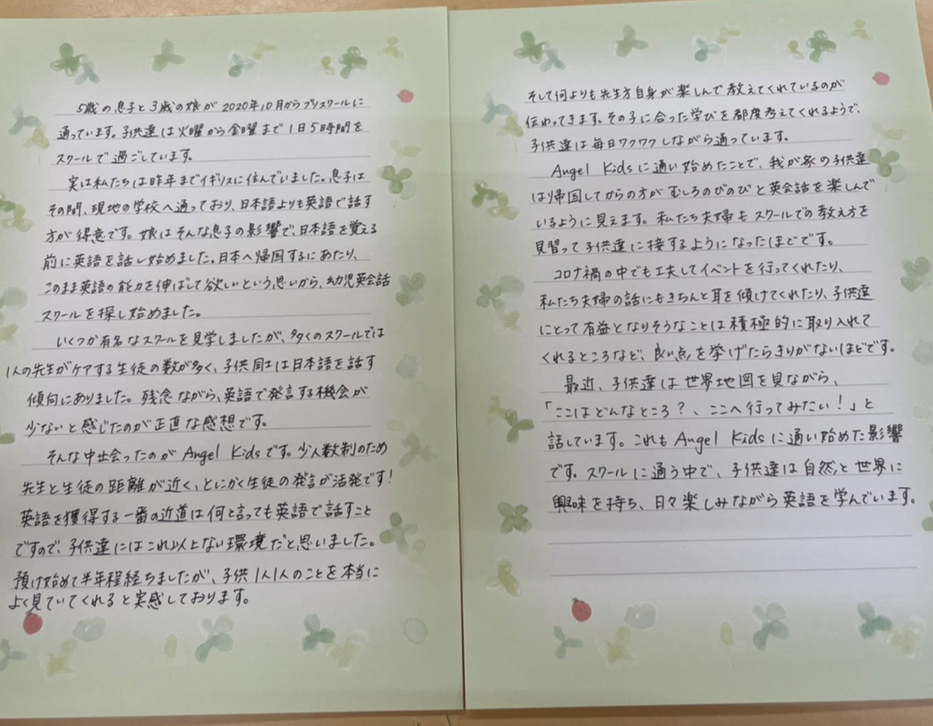 5歳の息子と3歳の娘が2020年10月からプリスクールに
通っています。子供達は火曜から金曜まで1日5時間を
スクールで過ごしています。
実は私たちは昨年までイギリスに住んでいました。息子は
その間、現地の学校へ通っており、日本語よりも英語で話す
方が得意です。娘はそんな息子の影響で、日本語を覚える
前に英語を話し始めました。日本へ帰国するにあたり、
このまま英語の能力を伸ばして欲しいという思いから、幼児英会話
スクールを探し始めました。
いくつか有名なスクールを見学しましたが、多くのスクールでは
1人の先生がケアする生徒の数が多く、子供同士は日本語を話す
傾向にありました。残念ながら、英語で発言する機会が
少ないと感じたのが正直な感想です。
そんな中出会ったのがAngel Kidsです。少人数制のため
先生と生徒の距離が近く、とにかく生徒の発言が活発です!
英語を獲得する一番の近道は何と言っても英語で話すこと
ですので、子供達にはこれ以上ない環境だと思いました。
預け始めて半年程経ちましたが、子供1人1人のことを本当に
よく見ていてくれると実感しております。
そして何よりも先生方自身が楽しんで教えてくれているのが
伝わってきます。その子に合った学びを都度考えてくれるようで、
子供達は毎日ワクワクしながら通っています。
Angel Kidsに通い始めたことで、我が家の子供達
は帰国してからの方がむしろのびのびと英会話を楽しんで
いるように見えます。私たち夫婦もスクールでの教え方を
見習って子供達に接するようになったほどです。
コロナ禍の中でも工夫してイベントを行ってくれたり、
私たち夫婦の話にもきちんと耳を傾けてくれたり、子供達
にとって有益となりそうなことは積極的に取り入れて
くれるところなど、良い点を挙げたらきりがないほどです。
最近、子供達は世界地図を見ながら、
「ここはどんなところ?、ここへ行ってみたい!」と
話しています。これもAngel Kidsに通い始めた影響
です。スクールに通う中で、子供達は自然と世界に
興味を持ち、日々楽しみながら英語を学んでいます。